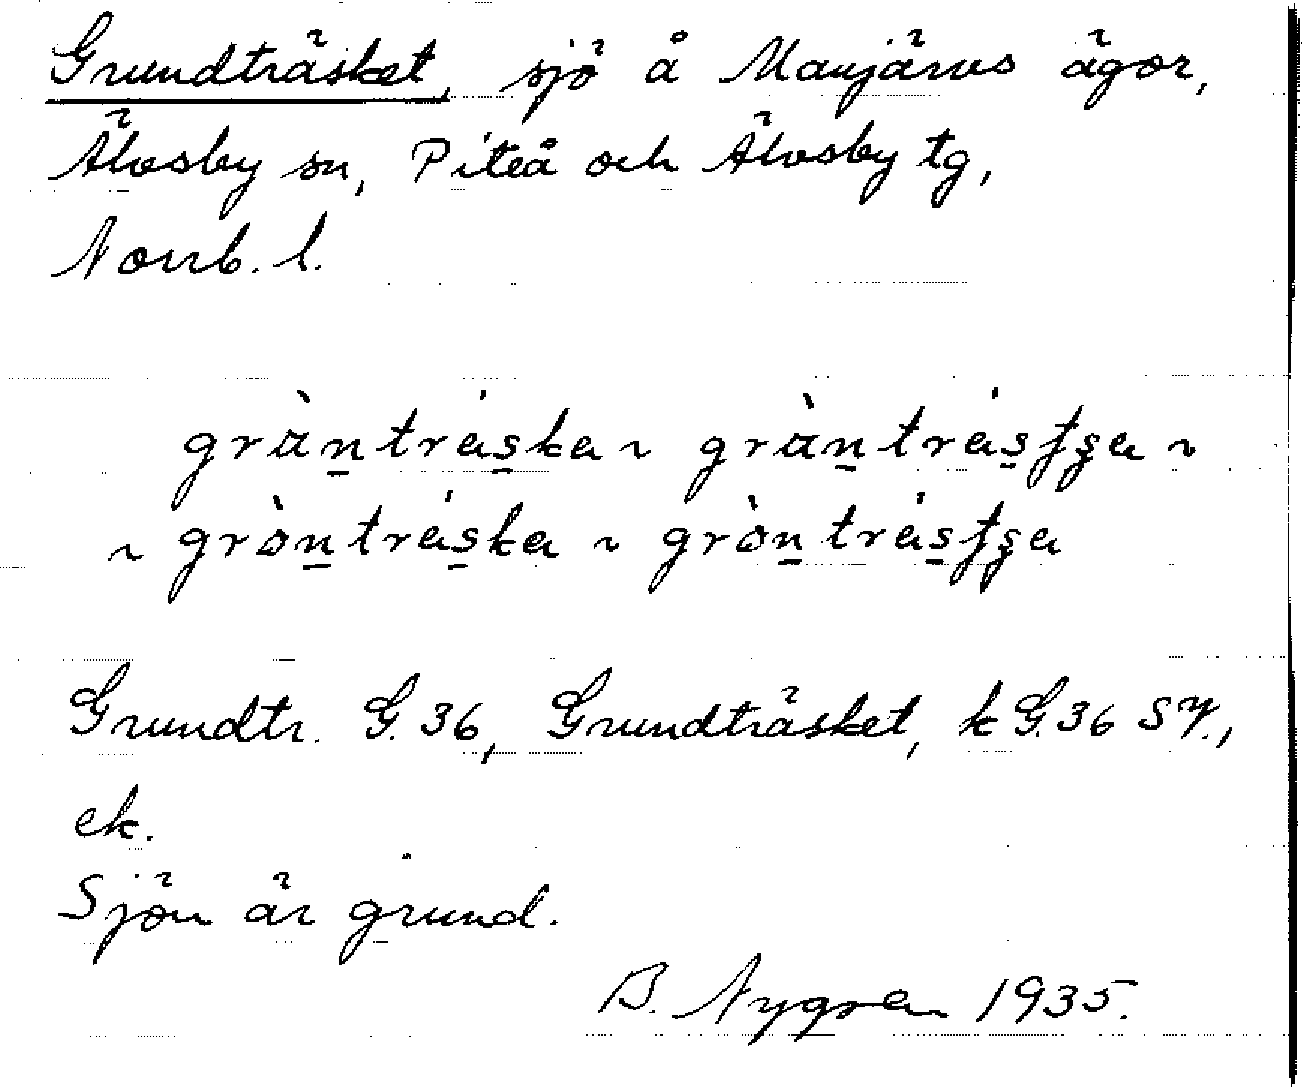 Grundträsket, sjö å Manjärvs ägor,
Älvsby sn, Piteå och Älvsby tg,
Norrb. l.
grùntrá̱ska ~ grùntrásʃʂa ~
~ gròntráska ~ gròntrásʃʂa
Grundtr. G. 36, Grundträsket, k G. 36 SV.,
ek.
Sjön är grund.
B. Nygren 1935.